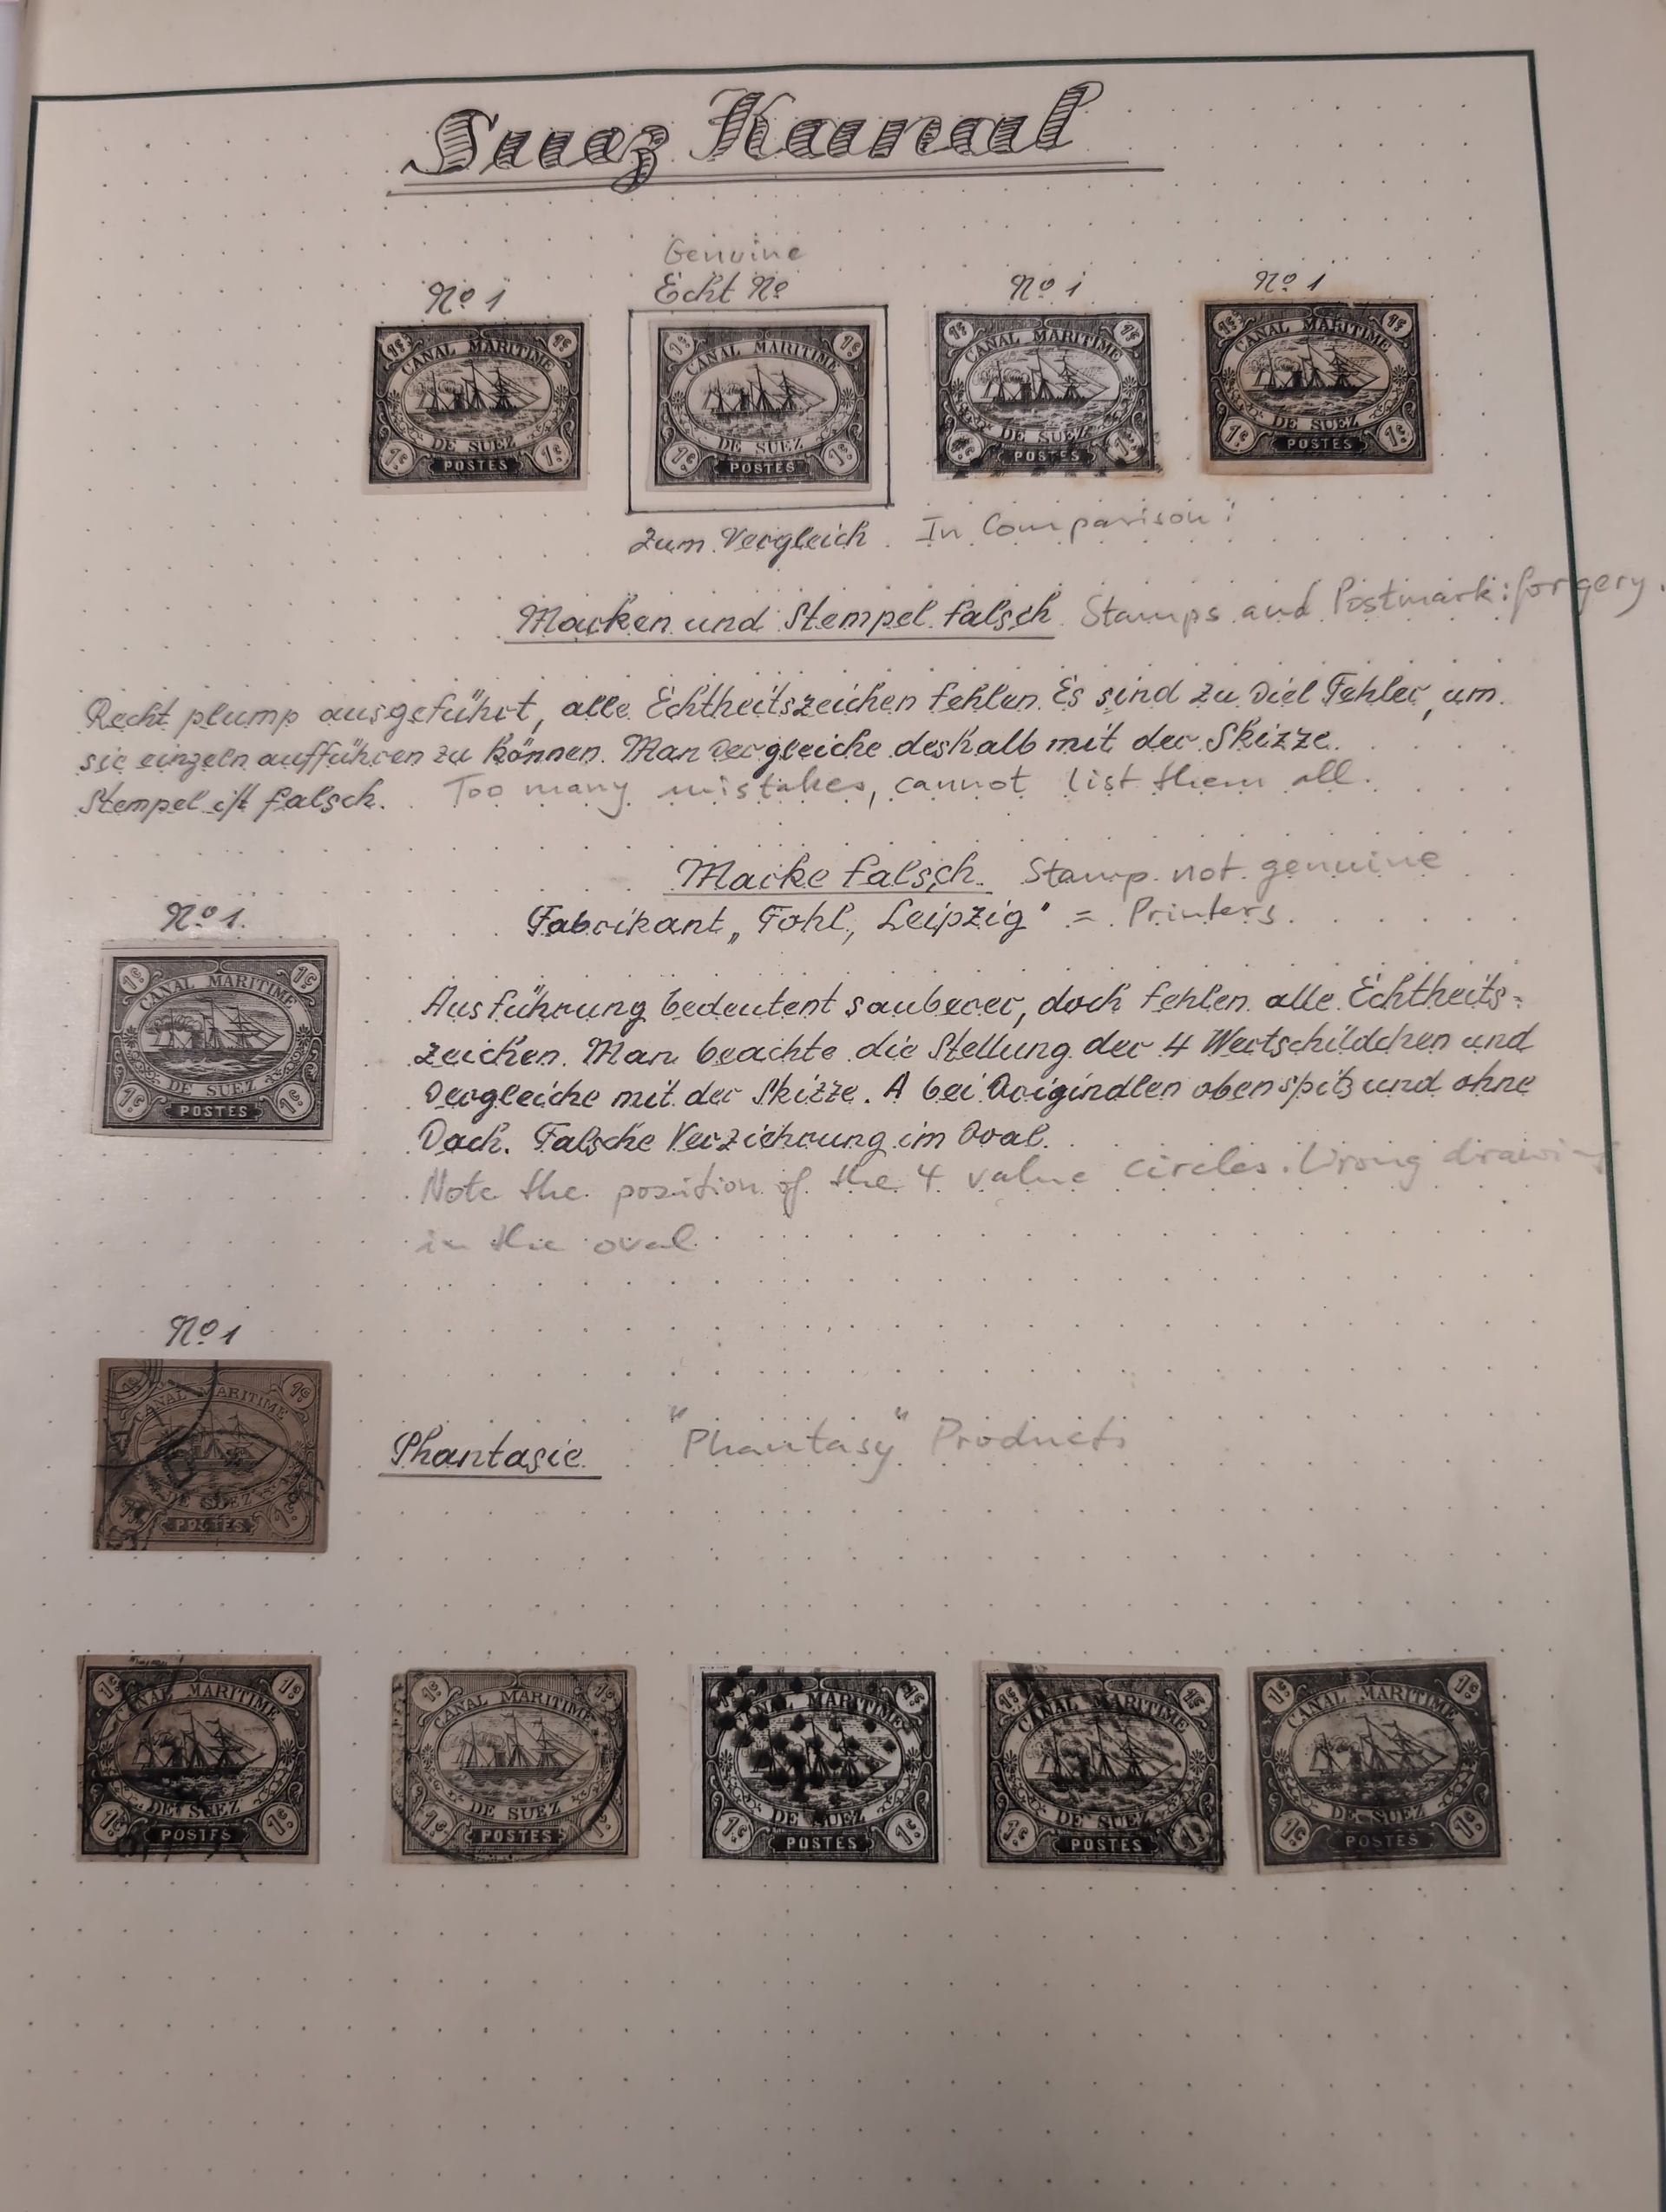 Suez Kanal
Genuine
No 1
Echt No
No 1
No 1
1c 1c
CANAL MARITIME
DE SUEZ
1c POSTES 1c
1c 1c
CANAL MARITIME
DE SUEZ
1c POSTES 1c
1c 1c
CANAL MARITIME
DE SUEZ
1c POSTES 1c
1c 1c
CANAL MARITIME
DE SUEZ
1c POSTES 1c
Zum Vergleich In Comparison:
Marken und Stempel falsch Stamps and Postmark: forgery.
Recht plump ausgeführt, alle Echtheitszeichen fehlen. Es sind zu viel Fehler, um
sie einzeln aufführen zu können. Man vergleiche deshalb mit der Skizze.
Stempel ist falsch. Too many mistakes, cannot list them all.
Marke falsch. Stamp not genuine
Fabrikant „Fohl, Leipzig" = Printers.
No 1.
1c 1c
CANAL MARITIME
DE SUEZ
1c POSTES 1c
Ausführung bedeutent sauberer, doch fehlen alle Echtheits=
zeichen. Man beachte die Stellung der 4 Wertschildchen und
vergleiche mit der Skizze. A bei Originalen oben spitz und ohne
Dach. Falsche Verziehrung im Oval.
Note the position of the 4 value circles. Wrong drawing
in the oval
No 1
1c
CANAL MARITIME
DE SUEZ
1c POSTES 1c
Phantasie "Phantasy" Products
1c 1c
CANAL MARITIME
DE SUEZ
1c POSTES 1c
1c 1c
CANAL MARITIME
DE SUEZ
1c POSTES 1c
1c
CANAL MARITIME
DE SUEZ
1c POSTES 1c
1c 1c
CANAL MARITIME
DE SUEZ
1c POSTES 1c
1c 1c
CANAL MARITIME
DE SUEZ
1c POSTES 1c